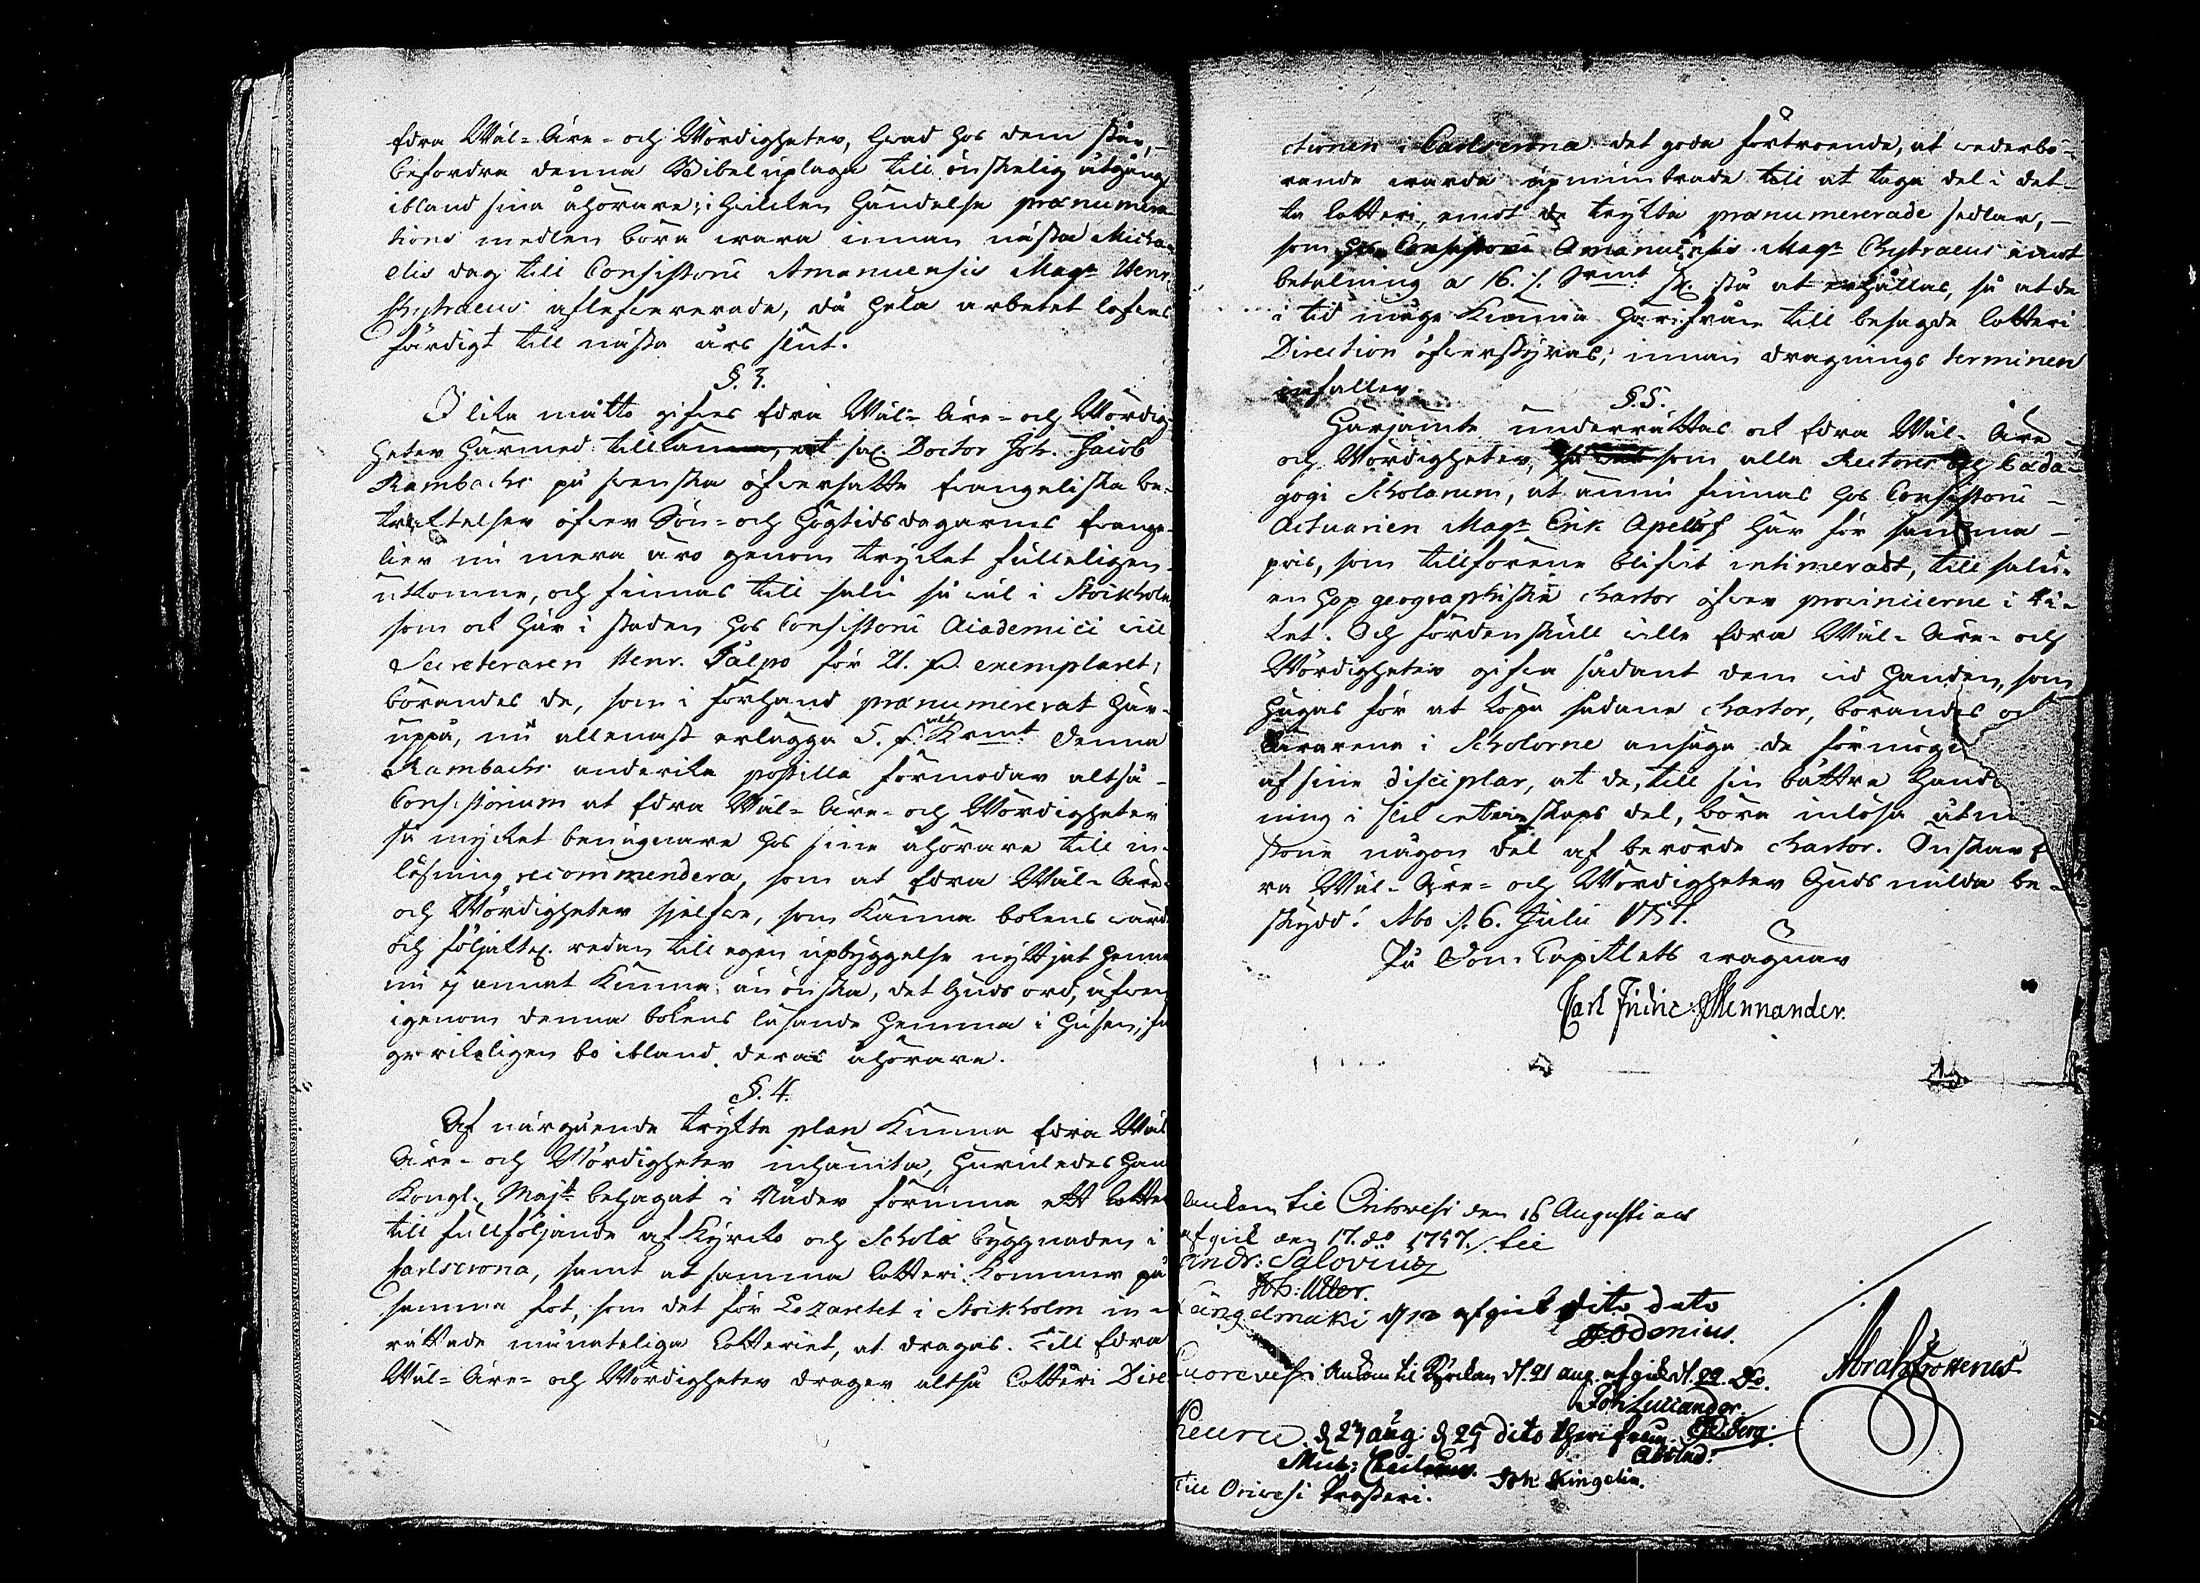 Edra Wäl- Äre- och Wördigheter, hwad hos dem står,
befordra denna Bibel uplaga till önskelig utgång
ibland sina åhörare; i hwilken händelse prænumera-
tions medlen böra wara innan nästa Micha-
elis dag till Consistorii Amanuensis Magr Henr.
Chytraeus aflefwererade, då hela arbetet lofwas
färdigt till nästa års slut.
§. 3.
I lika måtto gifwes Edra Wäl- Äre- och Wördig-
heter härmed tillkänna, at sal. Doctor Joh. Jacob
Rambachs på swenska öfwersatte Evangeliska be-
traktelser öfwer Sön- och Högtidsdagarnes Evange-
lier nu mera äro genom trycket fulleligen
utkomne, och finnas till salu så wäl i Stockholm
som ock här i staden hos Consistorii Academici
Secreteraren Henr. Falpo för 21. exemplaret;
börandes de, som i förhand prænumererat här-
uppå, nu allenast erlägga 5. Krmt Denna
Rambachs anderika postilla förmodar altså
Consistorium at Edra Wäl- Äre- och Wördigheter
så mycket benägnare hos sine åhörare till in-
lösning recommendera, som at Edra Wäl- Äre-
och Wördigheter sjelfwe, som känna bokens wärde
och följakt. redan till egen upbyggelse nyttjat henne
nu ej annat kunna än önska, det Guds ord, äfwen
igenom denna bokens läsande hemma i husen, må
rikeligen bo ibland deras åhörare.
§. 4.
Af närgående tryckta plan kunna Edra Wäl
Äre- och Wördigheter inhämta, huruledes Hans
Kongl. Majt behagat i Nåder förunna ett Lotteri
till fullföljande af Kyrcko och Schola byggnaden i
Carlscrona, samt at samma Lotteri kommer på
samma fot, som det för Lazaretet i Stockholm in-
rättade månateliga Lotteriet, at dragas. Till Edra
Wäl- Äre- och Wördigheter drager altså Lotteri Dire-
ctionen i Carlscrona det goda förtroende, at wederbö-
rande warda upmuntrade till at taga del i det-
ta Lotteri, emot de tryckta prænumererade sedlar,
som hos Consistorii Amanuensis Magr Chytraeus emot
betalning a 16. Srmt st. stå at erhållas, så at de
i tid måge kunna härifrån till besagde Lotteri
Direction öfwerstyras, innan dragnings terminen
infaller.
§. 5.
Härjämte underrättas ock Edra Wäl- Äre
och Wördigheter, som alla Rectores och Pæda-
gogi Scholarum, at ännu finnas hos Consistorii
Actuarien Magr Erik Apelløf här för samma
pris, som tillförene blifwit intimeradt, till salu
en hop geographiske chartor öfwer provincierne i Ri-
ket. Och fördenskull wille Edra Wäl- Äre- och
Wördigheter gifwa sådant dem wid handen, som
hugas för at köpa sådane chartor, börandes ock
Lärarena i Scholorne ansäga de förmöge
af sine disciplar, at de, till sin bättre hand
ning i wetenskaps del, böra inlösa åtmi
stone någon del af berörde chartor. Önskar E
ra Wäl- Äre- och Wördigheter Guds milda be-
skydd! Åbo d. 6. Julii 1757.
På Dom-Capitlets wägnar
Carl Fridric Mennander.
Ankom til Orihwesi den 16 Augusti och
afgick den 17. do 1757. til
Andr: Salovius
Joh: Utter.
Längelmäki afgick dito dato
Odenius.
Kuorewesi Ankom til Kyrckan d. 21 aug. afgick d. 22. Do.
Joh: Lucander.
Abrah: Frosterus
Keuru d 24 aug: d 25 dito
Joh: Kingelin.
Till Oriwesi Prosteri.